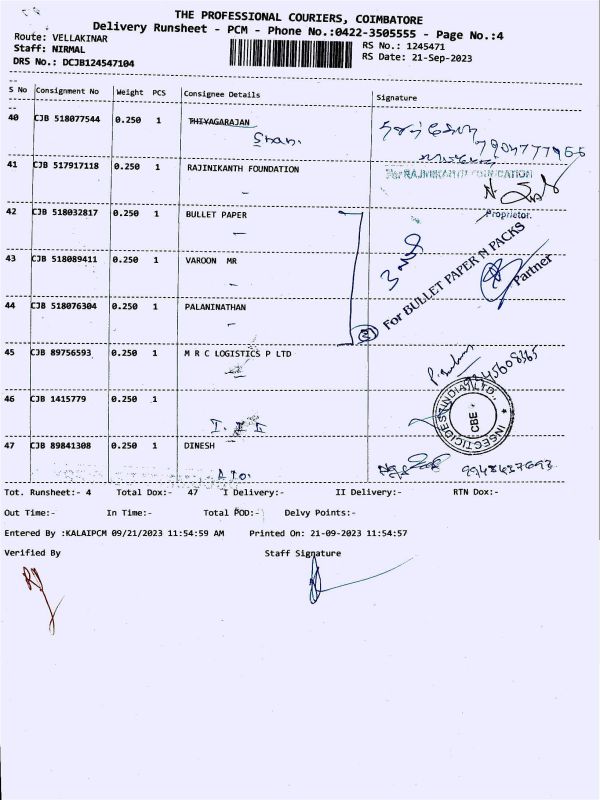 THE PROFESSIONAL COURIERS, COIMBATORE
Delivery Runsheet - PCM - Phone No.:0422-3505555 - Page No.:4
Route: VELLAKINAR RS No.: 1245471
Staff: NIRMAL RS Date: 21-Sep-2023
DRS No.: DCJB124547104
S No Consignment No Weight PCS Consignee Details Signature
40 CJB 518077544 0.250 1 THIYAGARAJAN
41 CJB 517917118 0.250 1 RAJINIKANTH FOUNDATION
For RAJINIKANTH FOUNDATION
Proprietor.
42 CJB 518032817 0.250 1 BULLET PAPER
43 CJB 518089411 0.250 1 VAROON MR
44 CJB 518076304 0.250 1 PALANINATHAN
3
For BULLET PAPER N PACKS
Partner
45 CJB 89756593 0.250 1 M R C LOGISTICS P LTD
46 CJB 1415779 0.250 1
INSECTICIDES (INDIA) LTD.,
CBE
47 CJB 89841308 0.250 1 DINESH
Tot. Runsheet:- 4 Total Dox:- 47 I Delivery:- II Delivery:- RTN Dox:-
Out Time:- In Time:- Total POD:- Delvy Points:-
Entered By :KALAIPCM 09/21/2023 11:54:59 AM Printed On: 21-09-2023 11:54:57
Verified By Staff Signature